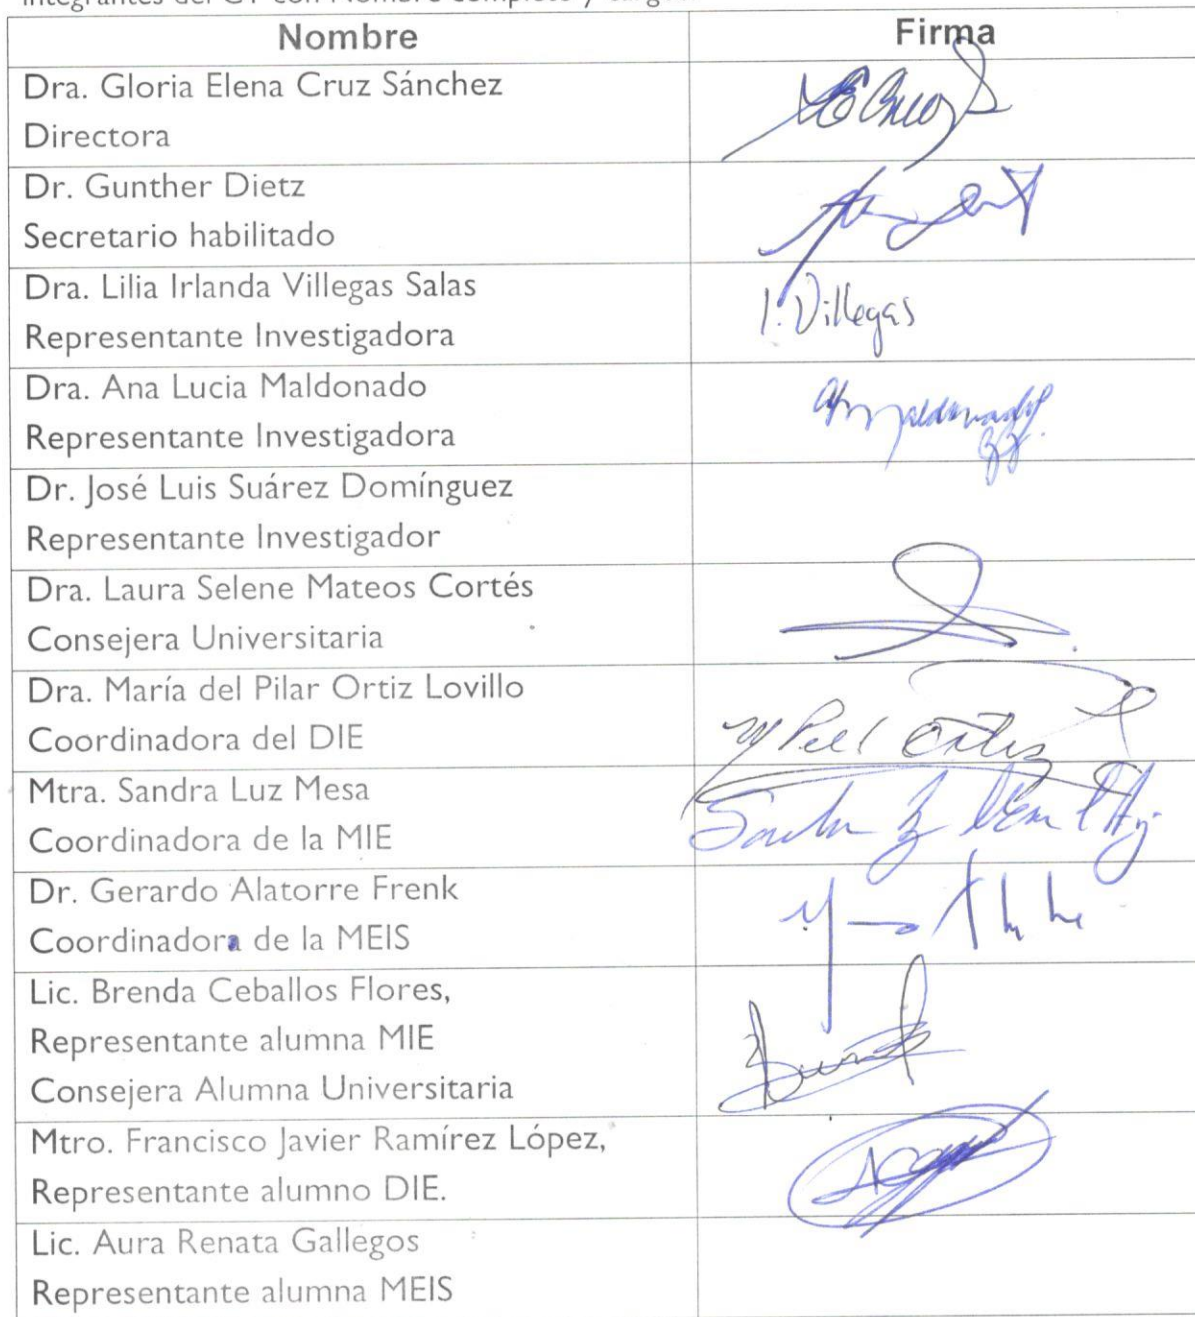 Nombre
Firma
Dra. Gloria Elena Cruz Sánchez
Directora
Dr. Gunther Dietz
Secretario habilitado
Dra. Lilia Irlanda Villegas Salas
Representante Investigadora
I. Villegas
Dra. Ana Lucia Maldonado
Representante Investigadora
Dr. José Luis Suárez Domínguez
Representante Investigador
Dra. Laura Selene Mateos Cortés
Consejera Universitaria
Dra. María del Pilar Ortiz Lovillo
Coordinadora del DIE
Mtra. Sandra Luz Mesa
Coordinadora de la MIE
Dr. Gerardo Alatorre Frenk
Coordinadora de la MEIS
Lic. Brenda Ceballos Flores,
Representante alumna MIE
Consejera Alumna Universitaria
Mtro. Francisco Javier Ramírez López,
Representante alumno DIE.
Lic. Aura Renata Gallegos
Representante alumna MEIS